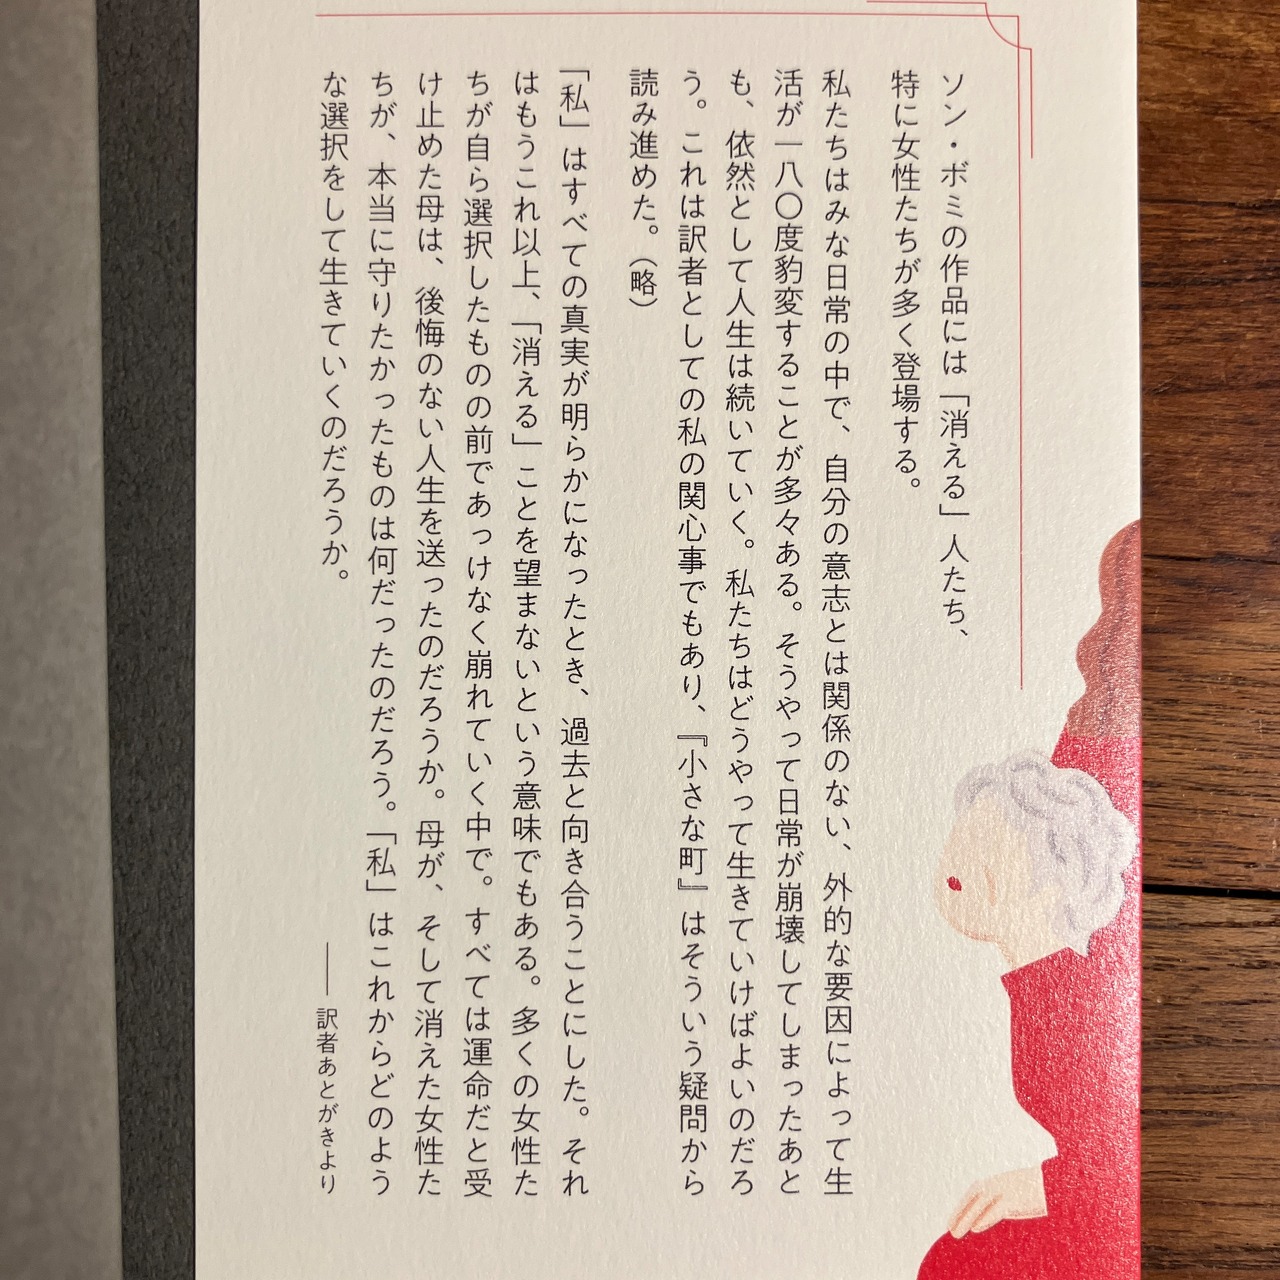 ソン・ボミの作品には「消える」人たち、
特に女性たちが多く登場する。
私たちはみな日常の中で、自分の意志とは関係のない、外的な要因によって生
活が一八〇度豹変することが多々ある。そうやって日常が崩壊してしまったあと
も、依然として人生は続いていく。私たちはどうやって生きていけばよいのだろ
う。これは訳者としての私の関心事でもあり、『小さな町』はそういう疑問から
読み進めた。（略）
「私」はすべての真実が明らかになったとき、過去と向き合うことにした。それ
はもうこれ以上、「消える」ことを望まないという意味でもある。多くの女性た
ちが自ら選択したものの前であっけなく崩れていく中で。すべては運命だと受
け止めた母は、後悔のない人生を送ったのだろうか。母が、そして消えた女性た
ちが、本当に守りたかったものは何だったのだろう。「私」はこれからどのよう
な選択をして生きていくのだろうか。
――訳者あとがきより